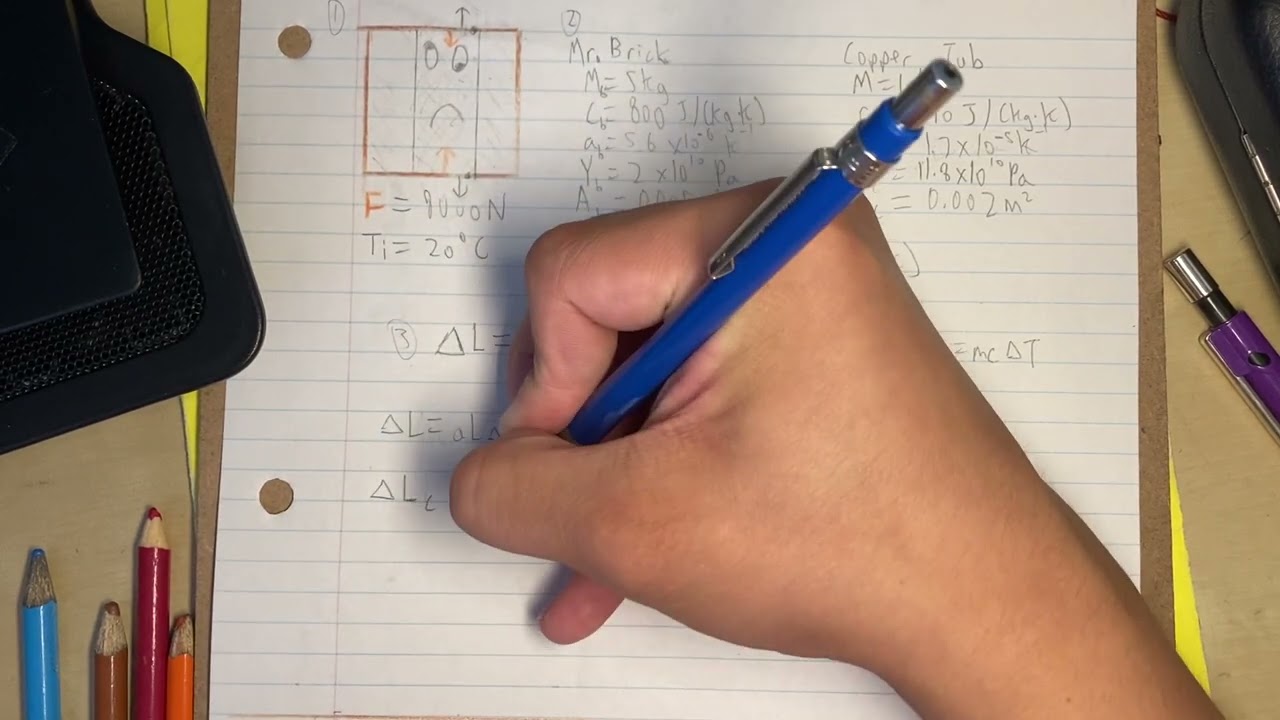 ①
F = 8000N
Ti = 20°C
②
Mr. Brick
Mb = 5kg
Cb = 800 J/(kg·K)
ab = 5.6 x10⁻⁶ K⁻¹
Yb = 2 x10¹⁰ Pa
Copper Tub
M = 1
10 J/(kg·K)
1.7x10⁻⁵ K⁻¹
= 11.8x10¹⁰ Pa
= 0.002 m²
③ ΔL =
= mcΔT
ΔL = aLΔ
ΔLc